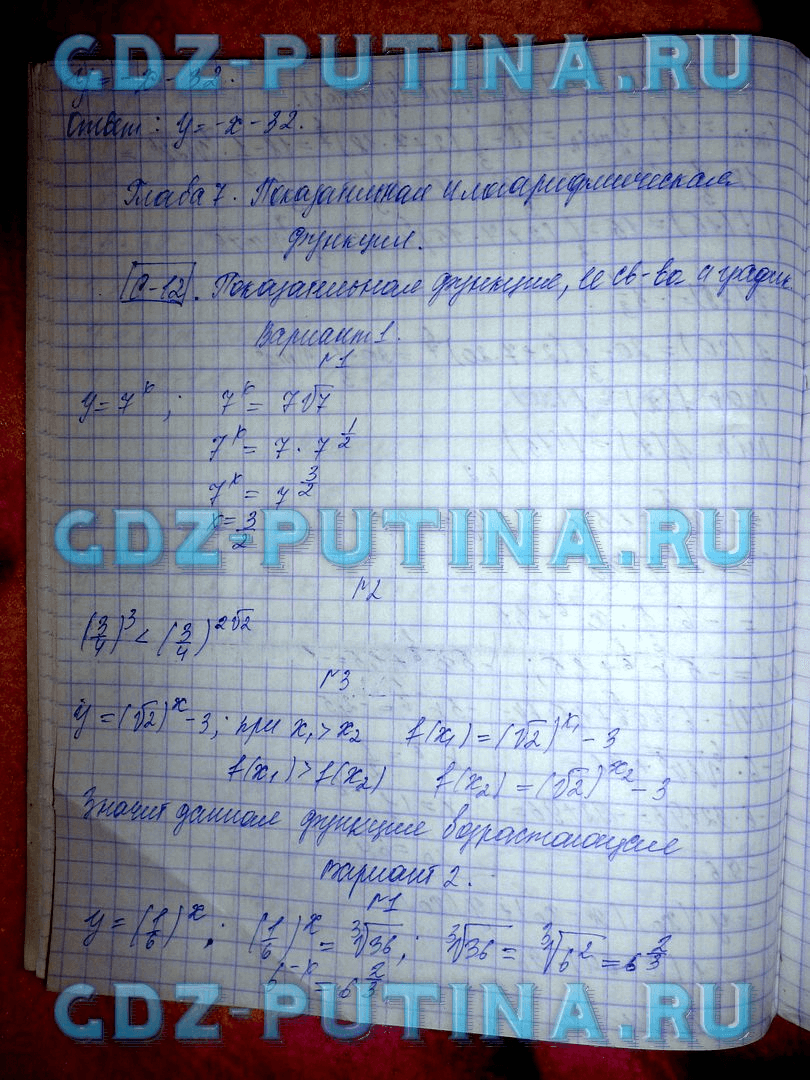 GDZ-PUTINA.RU
y = -x - 32.
Ответ: y = -x - 32.
Глава 7. Показательная и логарифмическая
функция.
С-12. Показательная функция, ее св-ва и график
Вариант 1.
№1
y = 7^x; 7^x = 7√7
7^x = 7 · 7^(1/2)
7^x = 7^(3/2)
x = 3/2
GDZ-PUTINA.RU
№2
(3/4)^3 < (3/4)^(2√2)
№3
y = (√2)^x - 3; при x₁ > x₂ f(x₁) = (√2)^(x₁) - 3
f(x₁) > f(x₂) f(x₂) = (√2)^(x₂) - 3
Значит данная функция возрастающая
Вариант 2.
№1
y = (1/6)^x; (1/6)^x = ∛36; ∛36 = ∛6² = 6^(2/3)
6^(-x) = 6^(2/3)
GDZ-PUTINA.RU